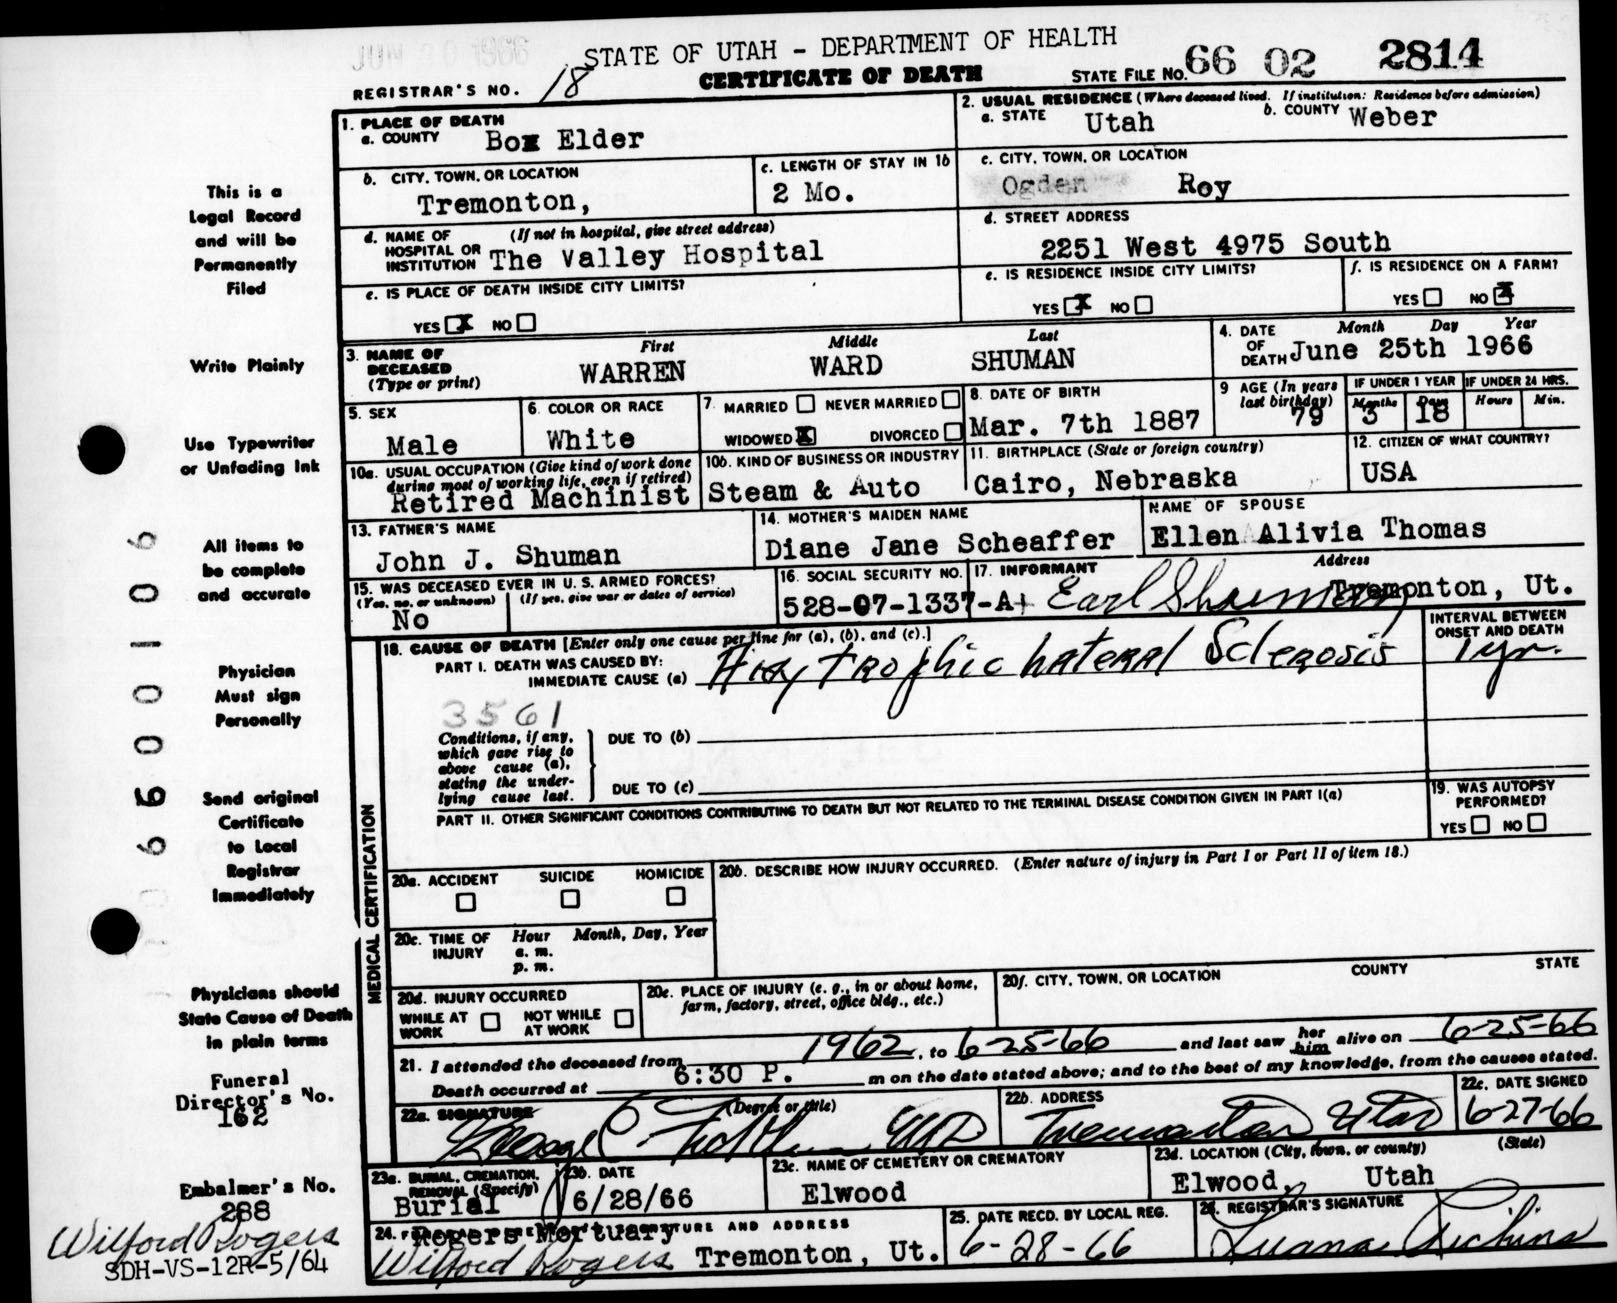 JUN 30 1966
STATE OF UTAH - DEPARTMENT OF HEALTH
CERTIFICATE OF DEATH
REGISTRAR'S NO. 18
STATE FILE NO. 66 02 2814
1. PLACE OF DEATH
a. COUNTY Box Elder
2. USUAL RESIDENCE (Where deceased lived. If institution: Residence before admission)
a. STATE Utah b. COUNTY Weber
b. CITY, TOWN, OR LOCATION
Tremonton,
c. LENGTH OF STAY IN 1b
2 Mo.
c. CITY, TOWN, OR LOCATION
Ogden Roy
d. NAME OF HOSPITAL OR INSTITUTION (If not in hospital, give street address)
The Valley Hospital
d. STREET ADDRESS
2251 West 4975 South
e. IS PLACE OF DEATH INSIDE CITY LIMITS?
YES X NO
e. IS RESIDENCE INSIDE CITY LIMITS?
YES X NO
f. IS RESIDENCE ON A FARM?
YES NO X
3. NAME OF DECEASED (Type or print)
First Middle Last
WARREN WARD SHUMAN
4. DATE OF DEATH Month Day Year
June 25th 1966
5. SEX
Male
6. COLOR OR RACE
White
7 MARRIED NEVER MARRIED
WIDOWED X DIVORCED
8. DATE OF BIRTH
Mar. 7th 1887
9 AGE (In years last birthday)
79
IF UNDER 1 YEAR
Months 3 Days 18
IF UNDER 24 HRS.
Hours Min.
10a. USUAL OCCUPATION (Give kind of work done during most of working life, even if retired)
Retired Machinist
10b. KIND OF BUSINESS OR INDUSTRY
Steam & Auto
11. BIRTHPLACE (State or foreign country)
Cairo, Nebraska
12. CITIZEN OF WHAT COUNTRY?
USA
13. FATHER'S NAME
John J. Shuman
14. MOTHER'S MAIDEN NAME
Diane Jane Scheaffer
NAME OF SPOUSE
Ellen Alivia Thomas
15. WAS DECEASED EVER IN U. S. ARMED FORCES?
(Yes, no, or unknown) (If yes, give war or dates of service)
No
16. SOCIAL SECURITY NO.
528-07-1337-A
17. INFORMANT Address
Earl Shuman Tremonton, Ut.
MEDICAL CERTIFICATION
18. CAUSE OF DEATH [Enter only one cause per line for (a), (b), and (c).]
PART I. DEATH WAS CAUSED BY:
IMMEDIATE CAUSE (a) Lateral Sclerosis
INTERVAL BETWEEN ONSET AND DEATH
1 yr.
3561
Conditions, if any, which gave rise to above cause (a), stating the underlying cause last.
DUE TO (b)
DUE TO (c)
PART II. OTHER SIGNIFICANT CONDITIONS CONTRIBUTING TO DEATH BUT NOT RELATED TO THE TERMINAL DISEASE CONDITION GIVEN IN PART I(a)
19. WAS AUTOPSY PERFORMED?
YES NO
20a. ACCIDENT SUICIDE HOMICIDE
20b. DESCRIBE HOW INJURY OCCURRED. (Enter nature of injury in Part I or Part II of item 18.)
20c. TIME OF INJURY Hour Month, Day, Year
a. m.
p. m.
20d. INJURY OCCURRED
WHILE AT WORK NOT WHILE AT WORK
20e. PLACE OF INJURY (e. g., in or about home, farm, factory, street, office bldg., etc.)
20f. CITY, TOWN, OR LOCATION COUNTY STATE
21. I attended the deceased from 1962, to 6-25-66 and last saw her him alive on 6-25-66
Death occurred at 6:30 P. m on the date stated above; and to the best of my knowledge, from the causes stated.
22a. SIGNATURE (Degree or title)
George MD
22b. ADDRESS
Tremonton Utah
22c. DATE SIGNED
6-27-66
23a. BURIAL, CREMATION, REMOVAL (Specify)
Burial
23b. DATE
6/28/66
23c. NAME OF CEMETERY OR CREMATORY
Elwood
23d. LOCATION (City, town, or county) (State)
Elwood, Utah
24. Rogers Mortuary SIGNATURE AND ADDRESS
Wilford Rogers Tremonton, Ut.
25. DATE RECD. BY LOCAL REG.
6-28-66
26. REGISTRAR'S SIGNATURE
Luana
This is a
Legal Record
and will be
Permanently
Filed
Write Plainly
Use Typewriter
or Unfading Ink
All items to
be complete
and accurate
Physician
Must sign
Personally
Send original
Certificate
to Local
Registrar
Immediately
Physicians should
State Cause of Death
in plain terms
Funeral
Director's No.
162
Embalmer's No.
288
Wilford Rogers
SDH-VS-12R-5/64
66001006